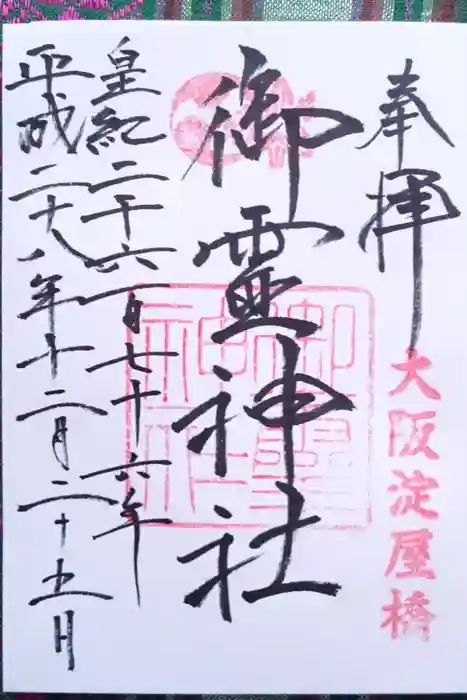 奉拝
大阪淀屋橋
御霊神社
皇紀二千六百七十六年
平成二十八年十二月二十五日